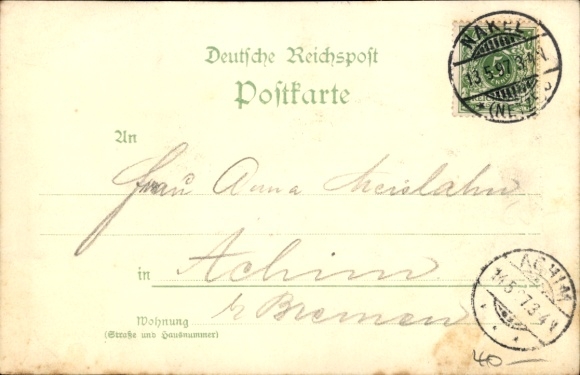 Deutsche Reichspost
Postkarte
NAKEL
13.5.97.3-4N.
(NETZE)
5
An
Frau Anna Meislahn
in Achim
b/ Bremen
Wohnung
(Straße und Hausnummer)
ACHIM
14.5.97.3-4N
40–